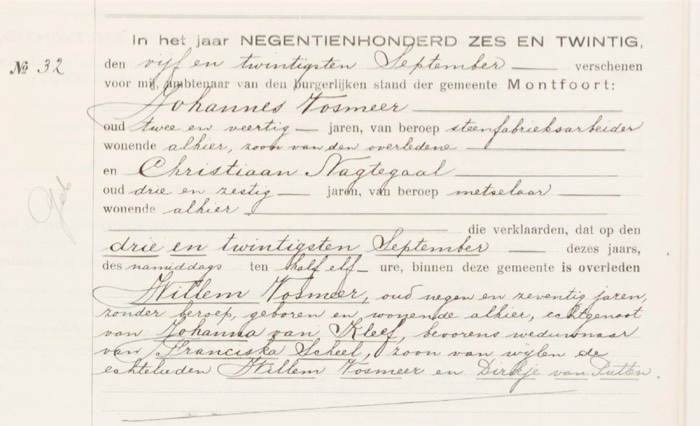 In het jaar NEGENTIENHONDERD ZES EN TWINTIG,
№ 32 den vijf en twintigsten September — verschenen
voor mij, ambtenaar van den burgerlijken stand der gemeente Montfoort:
Johannes Vosmeer
oud twee en veertig — jaren, van beroep steenfabrieksarbeider
wonende alhier, zoon van den overledene
en Christiaan Nagtegaal
oud drie en zestig — jaren, van beroep metselaar
wonende alhier
die verklaarden, dat op den
drie en twintigsten September — dezes jaars,
des namiddags ten half elf — ure, binnen deze gemeente is overleden
Willem Vosmeer, oud negen en zeventig jaren,
zonder beroep, geboren en wonende alhier, echtgenoot
van Johanna van Kleef, bevorens weduwnaar
van Franciska Scheel, zoon van wijlen de
echtelieden Willem Vosmeer en Dirkje van Putten.